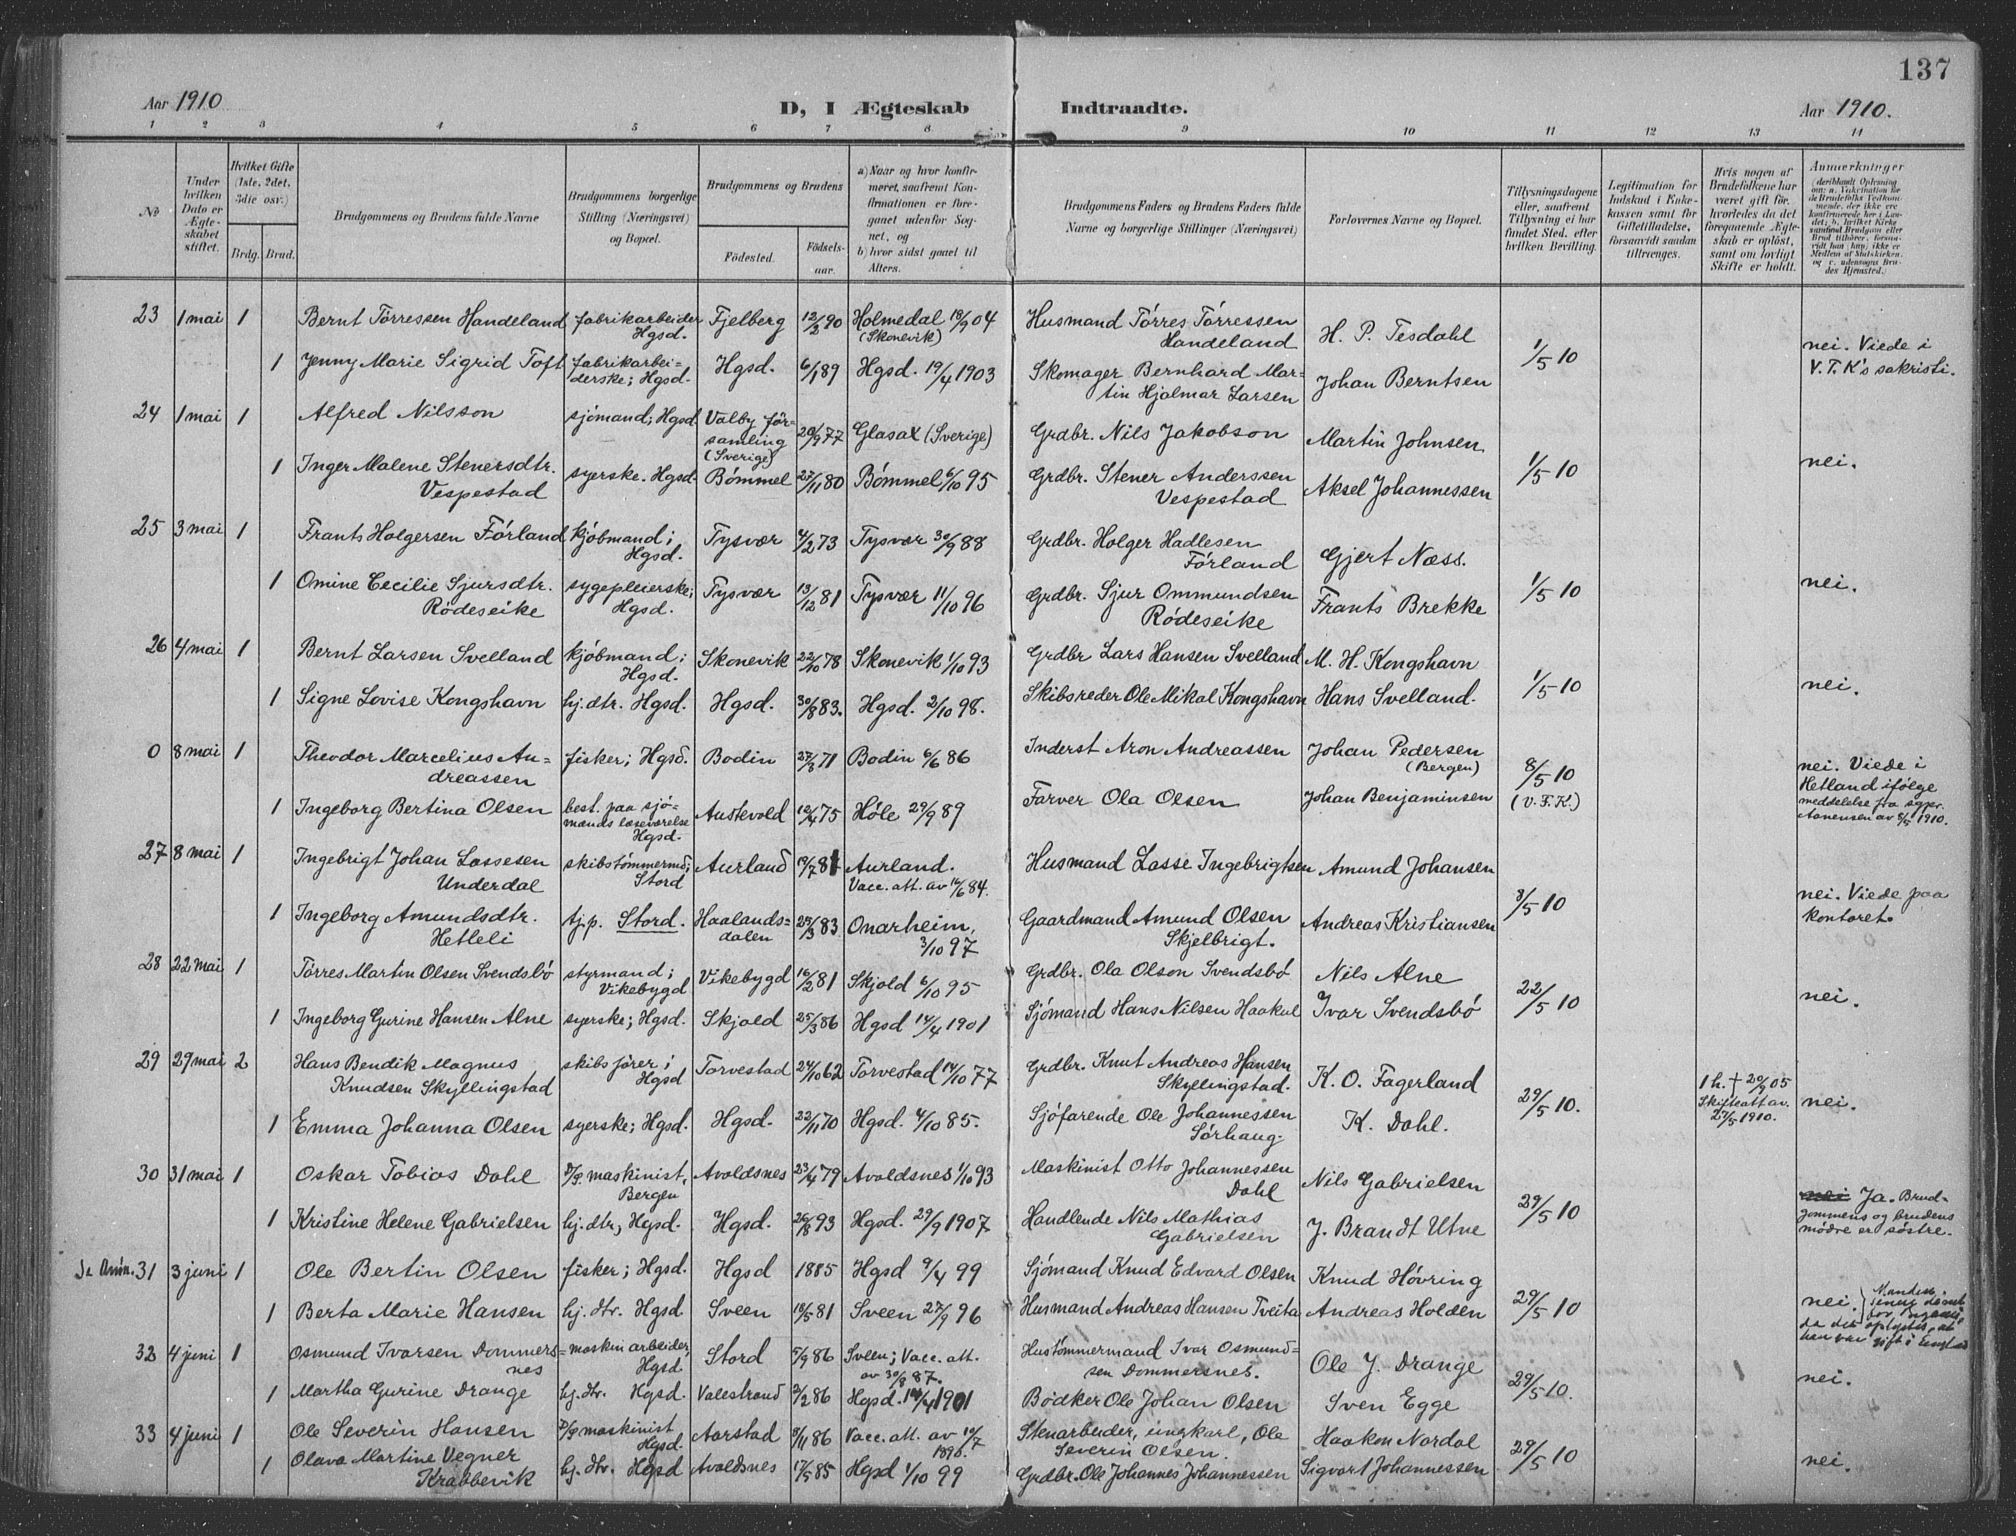 137
Aar 1910
D, I Ægteskab Indtraadte.
Aar 1910.
1 2 3 4 5 6 7 8 9 10 11 12 13 14
No
Under hvilken Dato er Ægteskabet stiftet.
Hvilket Gifte (1ste, 2det, 3die osv.)
Brdg. Brud.
Brudgommens og Brudens fulde Navne
Brudgommens borgerlige Stilling (Næringsvei) og Bopæl.
Brudgommens og Brudens
Fødested.
Fødselsaar.
a) Naar og hvor konfirmeret, saafremt Konfirmationen er foregaaet udenfor Sognet, og
b) hvor sidst gaaet til Alters.
Brudgommens Faders og Brudens Faders fulde Navne og borgerlige Stillinger (Næringsvei)
Forlovernes Navne og Bopæl.
Tillysningsdagene eller, saafremt Tillysning ei har fundet Sted, efter hvilken Bevilling.
Legitimation for Indskud i Enkekassen samt for Giftetilladelse, forsaavidt saadan tiltrænges.
Hvis nogen af Brudefolkene har været gift før, hvorledes da det foregaaende Ægteskab er opløst, samt om lovligt Skifte er holdt.
Anmerkninger
23 1 mai 1 Bernt Tørressen Handeland fabrikarbeider Hgsd. Fjelberg 12/2 90 Holmedal 18/9 04 (Skonevik) Husmand Tørres Tørressen Handeland H. P. Tesdahl
1 Jenny Marie Sigrid Toft fabrikarbeiderske; Hgsd. Hgsd. 6/1 89 Hgsd. 19/4 1903 Skomager Bernhard Martin Hjalmar Larsen Johan Berntsen 1/5 10 nei. Viede i V.F.K's sakristi.
24 1 mai 1 Alfred Nilsson sjømand; Hgsd Valby församling (Sverige) 20/9 77 Glasax (Sverige) Grdbr. Nils Jakobson Martin Johnsen
1 Inger Malene Stenersdtr. Vespestad syerske. Hgsd. Bømmel 27/11 80 Bømmel 6/10 95 Grdbr. Stener Anderssen Vespestad Aksel Johannessen 1/5 10 nei.
25 3 mai 1 Frants Holgersen Førland kjøbmand; Hgsd. Tysvær 4/2 73 Tysvær 30/9 88 Grdbr. Holger Hadlesen Førland Gjert Næss.
1 Omine Cecilie Sjursdtr. Rødeseike sygepleierske; Hgsd. Tysvær 13/12 81 Tysvær 11/10 96 Grdbr. Sjur Ommundsen Rødeseike Frants Brekke 1/5 10 nei.
26 4 mai 1 Bernt Larsen Svelland kjøbmand; Hgsd. Skonevik 22/10 78 Skonevik 1/10 93 Grdbr Lars Hansen Svelland M. H. Kongshavn
1 Signe Lovise Kongshavn hj. dtr. Hgsd. Hgsd. 30/8 83. Hgsd. 2/10 98. Skibsreder Ole Mikal Kongshavn Hans Svelland. 1/5 10 nei.
0 8 mai 1 Theodor Marcelius Andreassen fisker; Hgsd. Bodin 27/3 71 Bodin 6/6 86 Inderst Aron Andreassen Johan Pedersen (Bergen)
1 Ingeborg Bertina Olsen best. paa sjømands læseværelse Hgsd. Austevold 12/4 75 Høle 29/9 89 Farver Ola Olsen Johan Benjaminsen 8/5 10 (V.F.K.) nei. Viede i Hetland ifølge meddelelse fra sgpr. Aanensen av 8/5 1910.
27 8 mai 1 Ingebrigt Johan Lassesen Underdal skibstømmermd; Stord Aurland 19/7 81 Aurland. Vacc. att. av 16/6 84. Husmand Lasse Ingebrigtsen Amund Johansen
1 Ingeborg Amundsdtr. Hetleli tj.p. Stord. Haalandsdalen 25/3 83 Onarheim, 3/10 97 Gaardmand Amund Olsen Skjelbrigt. Andreas Kristiansen 8/5 10 nei. Viede paa kontoret.
28 22 mai 1 Tørres Martin Olsen Svendsbø styrmand; Vikebygd Vikebygd 16/2 81 Skjold 6/10 95 Grdbr. Ola Olson Svendsbø Nils Alne
1 Ingeborg Gurine Hansen Alne syerske; Hgsd. Skjold 25/3 86 Hgsd 14/4 1901 Sjømand Hans Nilsen Haakul Ivar Svendsbø 22/5 10 nei.
29 29 mai 2 Hans Bendik Magnus Knudsen Skyllingstad skibsfører; Hgsd Torvestad 24/10 62 Torvestad 14/10 77 Grdbr. Knut Andreas Hansen Skyllingstad. K. O. Fagerland
1 Emma Johanna Olsen syerske; Hgsd. Hgsd. 22/11 70 Hgsd. 4/10 85. Sjøfarende Ole Johannessen Sørhaug. K. Dahl. 29/5 10. 1 h. † 20/9 05 Skifteatt av. 27/5 1910. nei.
30 31 mai 1 Oskar Tobias Dahl D/S. maskinist, Bergen Avaldsnes 23/4 79 Avaldsnes 1/10 93 Maskinist Otto Johannessen Dahl Nils Gabrielsen
1 Kristine Helene Gabrielsen hj. dtr, Hgsd. Hgsd. 26/8 93 Hgsd. 29/9 1907 Handlende Nils Mathias Gabrielsen J. Brandt Utne 29/5 10 nei Ja. Brudgommens og brudens mødre er søstre.
Se Anm. 31 3 juni 1 Ole Bertin Olsen fisker; Hgsd. Hgsd 1885 Hgsd 9/4 99 Sjømand Knud Edvard Olsen Knud Høvring
1 Berta Marie Hansen hj. dtr. Hgsd Sveen 18/5 81 Sveen 27/9 96 Husmand Andreas Hansen Tveita Andreas Holden 29/5 10 nei. da det oplystes, at han var gift i
32 4 juni 1 Osmund Ivarsen Dommersnes maskinarbeider, Hgsd. Stord 5/9 86 Sveen; Vacc. att. av 30/8 87. Hustømmermand Ivar Osmundsen Dommersnes. Ole J. Drange
1 Martha Gurine Drange hj. dtr. Hgsd. Valestrand 2/2 86 Hgsd. 14/4 1901 Bødker Ole Johan Olsen Sven Egge 29/5 10. nei.
33 4 juni 1 Ole Severin Hansen D/S maskinist Hgsd. Aarstad 8/11 86 Vacc. att. av 10/7 1890. Stenarbeider, ungkarl, Ole Severin Olsen. Haakon Nordal
1 Olava Martine Vegner Krabbevik hj. dtr. Hgsd Avaldsnes 17/5 85 Hgsd 1/10 99 Grdbr. Ole Johannes Johannessen Sigvart Johannessen 29/5 10 nei.